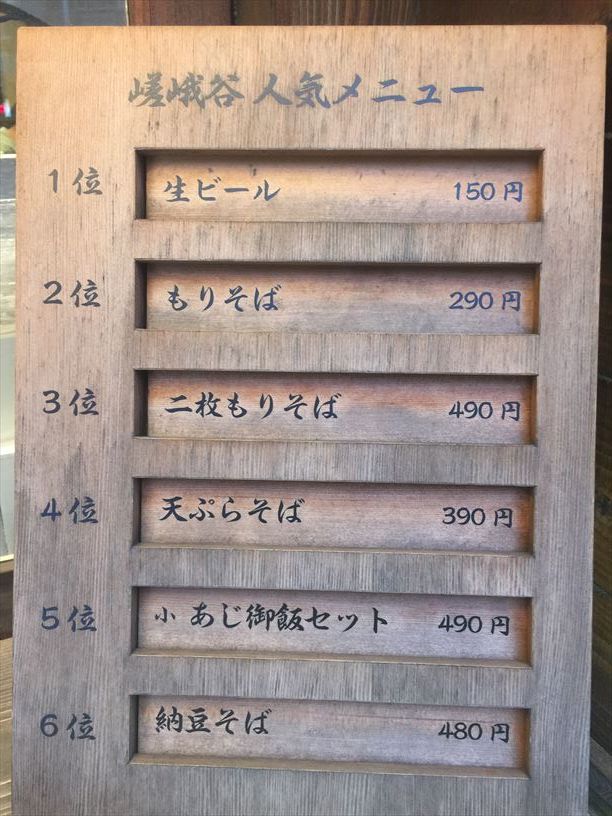 嵯峨谷 人気メニュー
1位 生ビール 150円
2位 もりそば 290円
3位 二枚もりそば 490円
4位 天ぷらそば 390円
5位 小 あじ御飯セット 490円
6位 納豆そば 480円